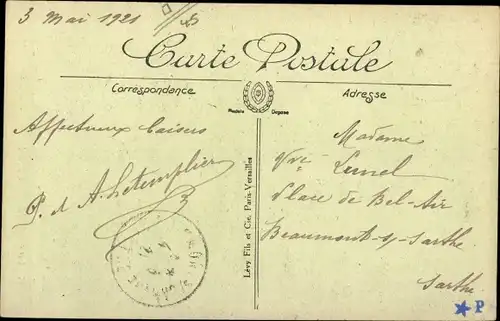 3 Mai 1921
Carte Postale
Correspondance
Adresse
Modèle Déposé
Affectueux baisers
P. et A. Letemplier
Lévy, Fils et Cie, Paris-Versailles
Madame
Vve Lunel
Place de Bel-Air
Beaumont-s/-Sarthe
Sarthe
★ P